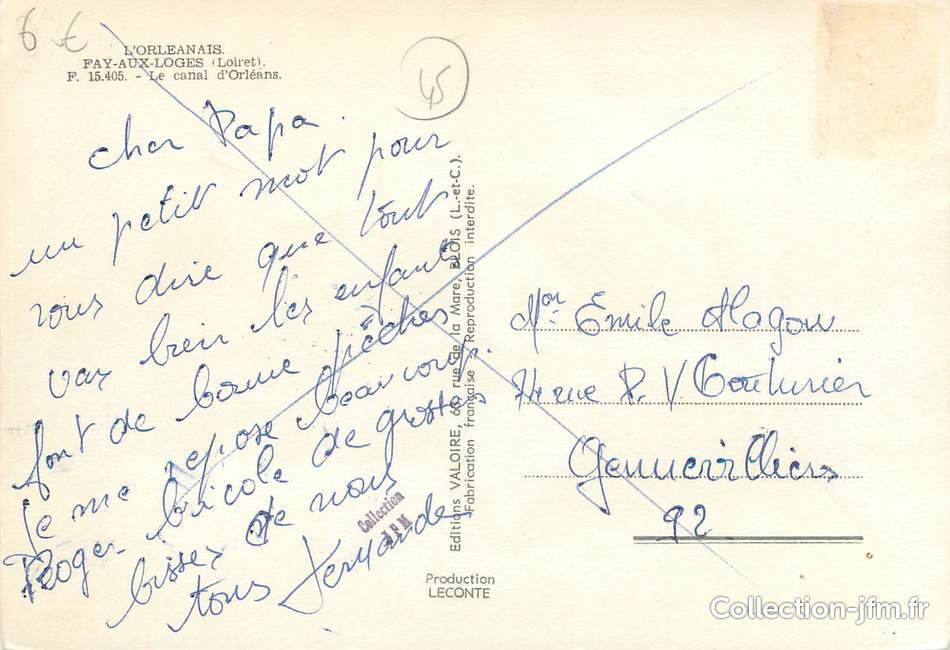 6 €
L'ORLEANAIS.
FAY-AUX-LOGES (Loiret).
F. 15.405. - Le canal d'Orléans.
45
cher Papa.
un petit mot pour
vous dire que tout
vas bien les enfants
font de bonne pêches
je me repose beaucoup.
Roger bricole de grosses
bisses de nous
tous Fernande
Editions VALOIRE, rue de la Mare, BLOIS (L.-et-C.).
Fabrication française - Reproduction interdite.
Collection
JFM
Production
LECONTE
Mon. Emile Magou
rue P. V Couturier
Gennevilliers
92
Collection-jfm.fr